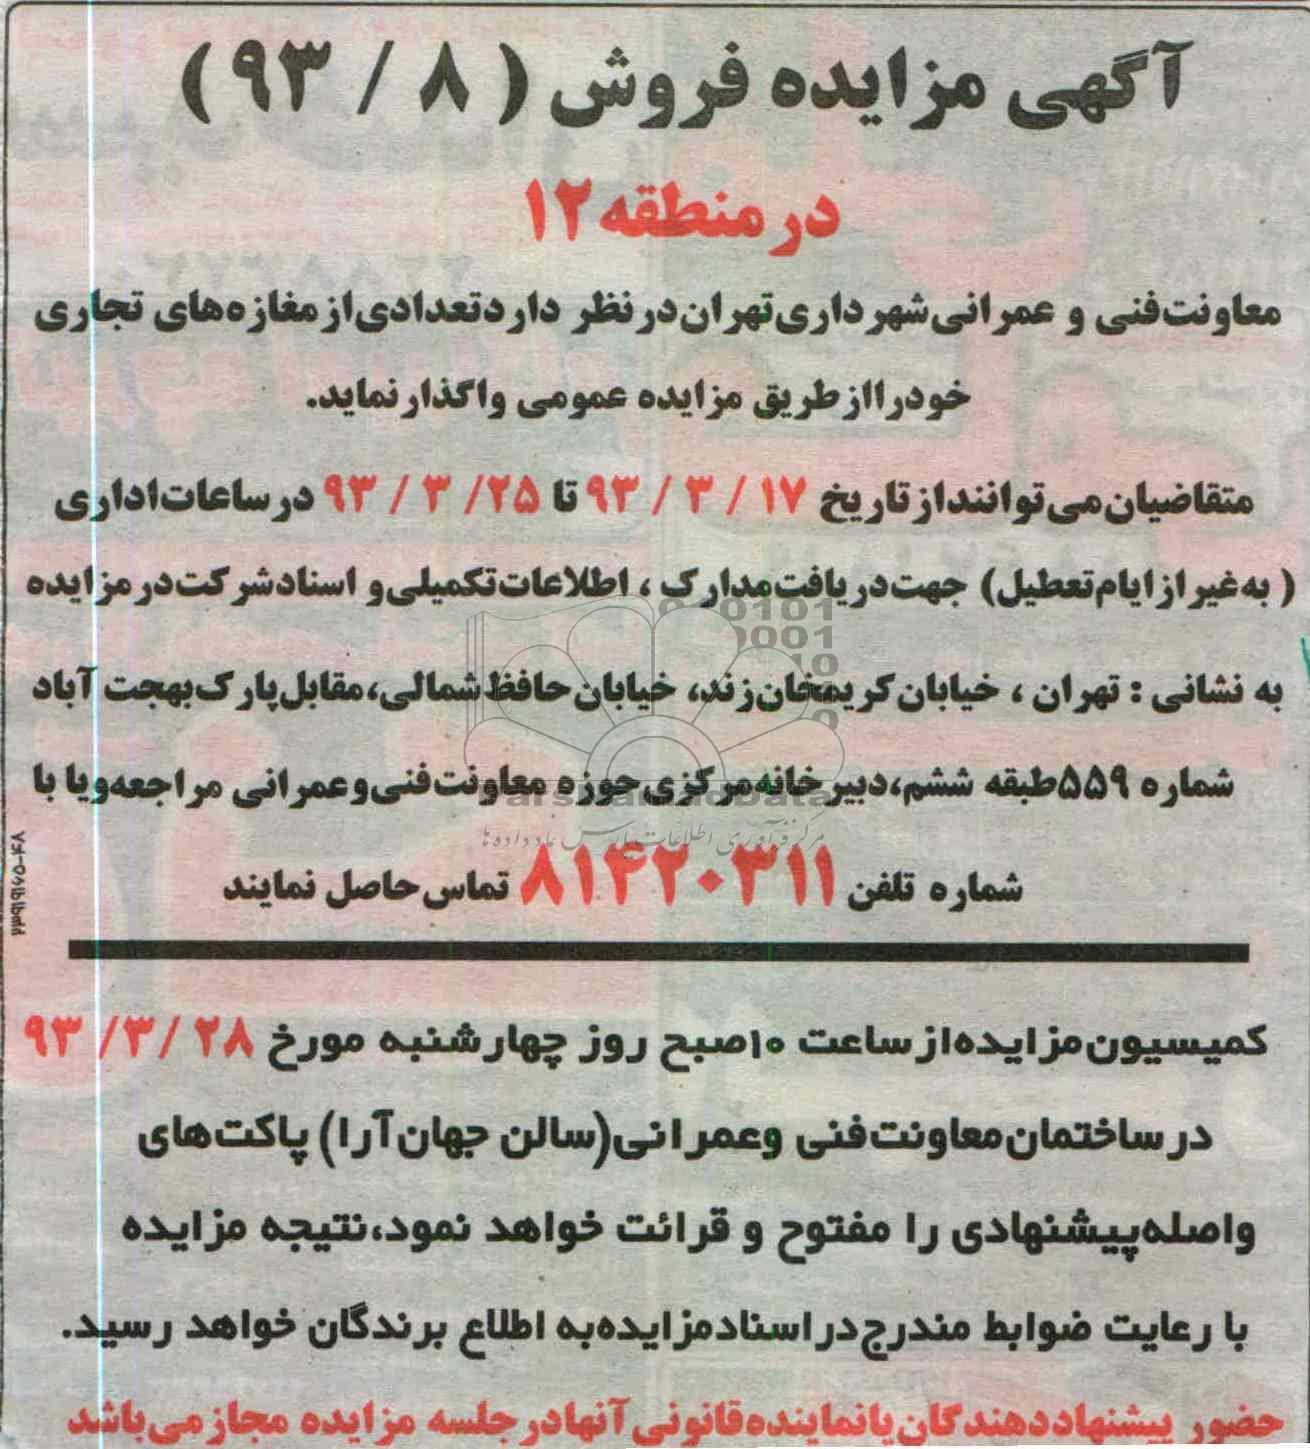 آگهی مزایده فروش ( ۸ / ۹۳ )
در منطقه ۱۲
معاونت فنی و عمرانی شهرداری تهران در نظر دارد تعدادی از مغازه‌های تجاری
خود را از طریق مزایده عمومی واگذار نماید.
متقاضیان می‌توانند از تاریخ ۱۷ / ۳ / ۹۳ تا ۲۵/ ۳ / ۹۳ در ساعات اداری
( به غیر از ایام تعطیل) جهت دریافت مدارک ، اطلاعات تکمیلی و اسناد شرکت در مزایده
به نشانی : تهران ، خیابان کریمخان زند، خیابان حافظ شمالی، مقابل پارک بهجت آباد
شماره ۵۵۹ طبقه ششم، دبیرخانه مرکزی حوزه معاونت فنی و عمرانی مراجعه و یا با
شماره تلفن ۸۱۴۲۰۳۱۱ تماس حاصل نمایند
کمیسیون مزایده از ساعت ۱۰ صبح روز چهارشنبه مورخ ۲۸ /۳/ ۹۳
در ساختمان معاونت فنی و عمرانی (سالن جهان آرا) پاکت های
واصله پیشنهادی را مفتوح و قرائت خواهد نمود، نتیجه مزایده
با رعایت ضوابط مندرج در اسناد مزایده به اطلاع برندگان خواهد رسید.
حضور پیشنهاد دهندگان یا نماینده قانونی آنها در جلسه مزایده مجاز می باشد
ParsNamadData
مرکز فرآوری اطلاعات پارس نماد داده ها